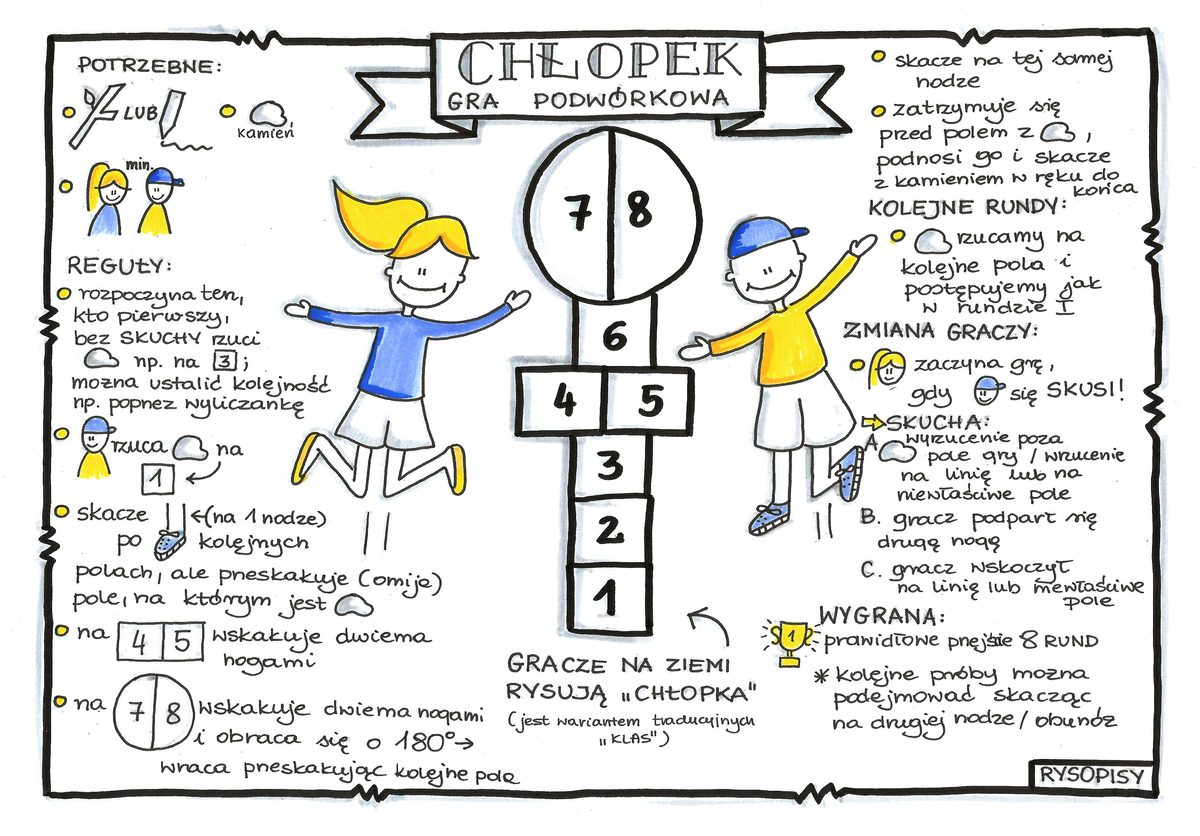 CHŁOPEK
GRA PODWÓRKOWA
POTRZEBNE:
LUB
kamień
min.
REGUŁY:
rozpoczyna ten,
kto pierwszy,
bez SKUCHY rzuci
np. na 3;
można ustalić kolejność
np. poprzez wyliczankę
rzuca na
1
skacze ←(na 1 nodze)
po kolejnych
polach, ale przeskakuje (omija)
pole, na którym jest
na 4 5 wskakuje dwiema
nogami
na 7 8 wskakuje dwiema nogami
i obraca się o 180° →
wraca przeskakując kolejne pola
7 8
6
4 5
3
2
1
GRACZE NA ZIEMI
RYSUJĄ „CHŁOPKA"
(jest wariantem tradycyjnych
„KLAS")
skacze na tej samej
nodze
zatrzymuje się
przed polem z ,
podnosi go i skacze
z kamieniem w ręku do
końca
KOLEJNE RUNDY:
rzucamy na
kolejne pola i
postępujemy jak
w rundzie I
ZMIANA GRACZY:
zaczyna grę,
gdy się SKUSI!
SKUCHA:
A wyrzucenie poza
pole gry / wrzucenie
na linię lub na
niewłaściwe pole
B. gracz podparł się
drugą nogą
C. gracz wskoczył
na linię lub niewłaściwe
pole
WYGRANA:
1
prawidłowe przejście 8 RUND
* kolejne próby można
podejmować skacząc
na drugiej nodze / obunóż
RYSOPISY